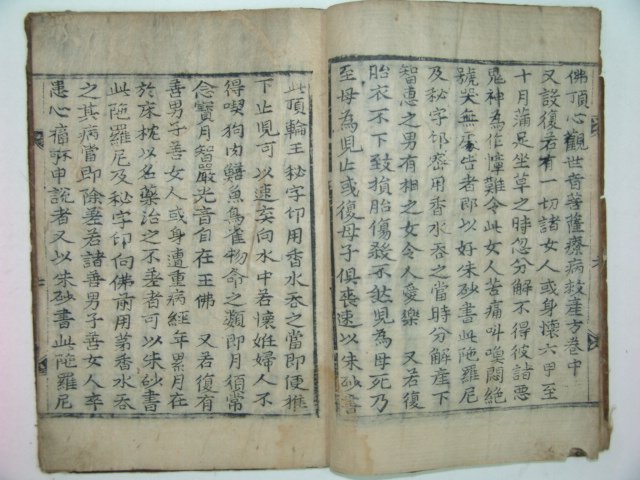 佛頂心觀世音菩薩療病救產方卷中
又設復若有一切諸女人或身懷六甲至
十月蒲足坐草之時忽分解不得彼諸惡
鬼神為作慞難令此女人苦痛叫喚悶絕
號哭無處告者即以好朱砂書此陁羅尼
及秘字印密用香水吞之當時分解產下
智惠之男有相之女令人愛樂 又若復
胎衣不下致損胎傷殺不然兒為母死乃
至母為兒止或復母子俱喪速以朱砂書
此頂輪王秘字印用香水吞之當即便推
下止兒可以速弃向水中若懷姙婦人不
得喫狗肉鱔魚鳥雀物命之類即月須常
念寶月智嚴光音自在王佛 又若復有
善男子善女人或身遭重病經年累月在
於床枕以名藥治之不差者可以朱砂書
此陁羅尼及秘字印向佛前用茅香水吞
之其病當即除差若諸善男子善女人卒
患心痛不申說者又以朱砂書此陁羅尼